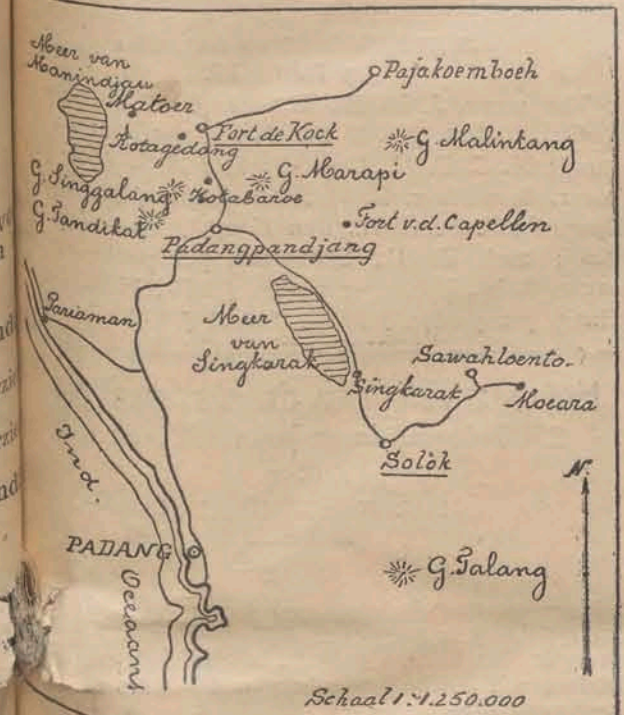 Meer van
Manindjau
Matoer
Pajakoemboeh
Fort de Kock
Kotagedang
G. Malintang
G. Singgalang
Kotabaroe
G. Marapi
G. Tandikat
Fort v.d. Capellen
Padangpandjang
Pariaman
Meer
van
Singkarak
Sawahloento
Singkarak
Moeara
Solok
Ind.
N.
PADANG
G. Talang
Oceaan
Schaal 1:1.250.000